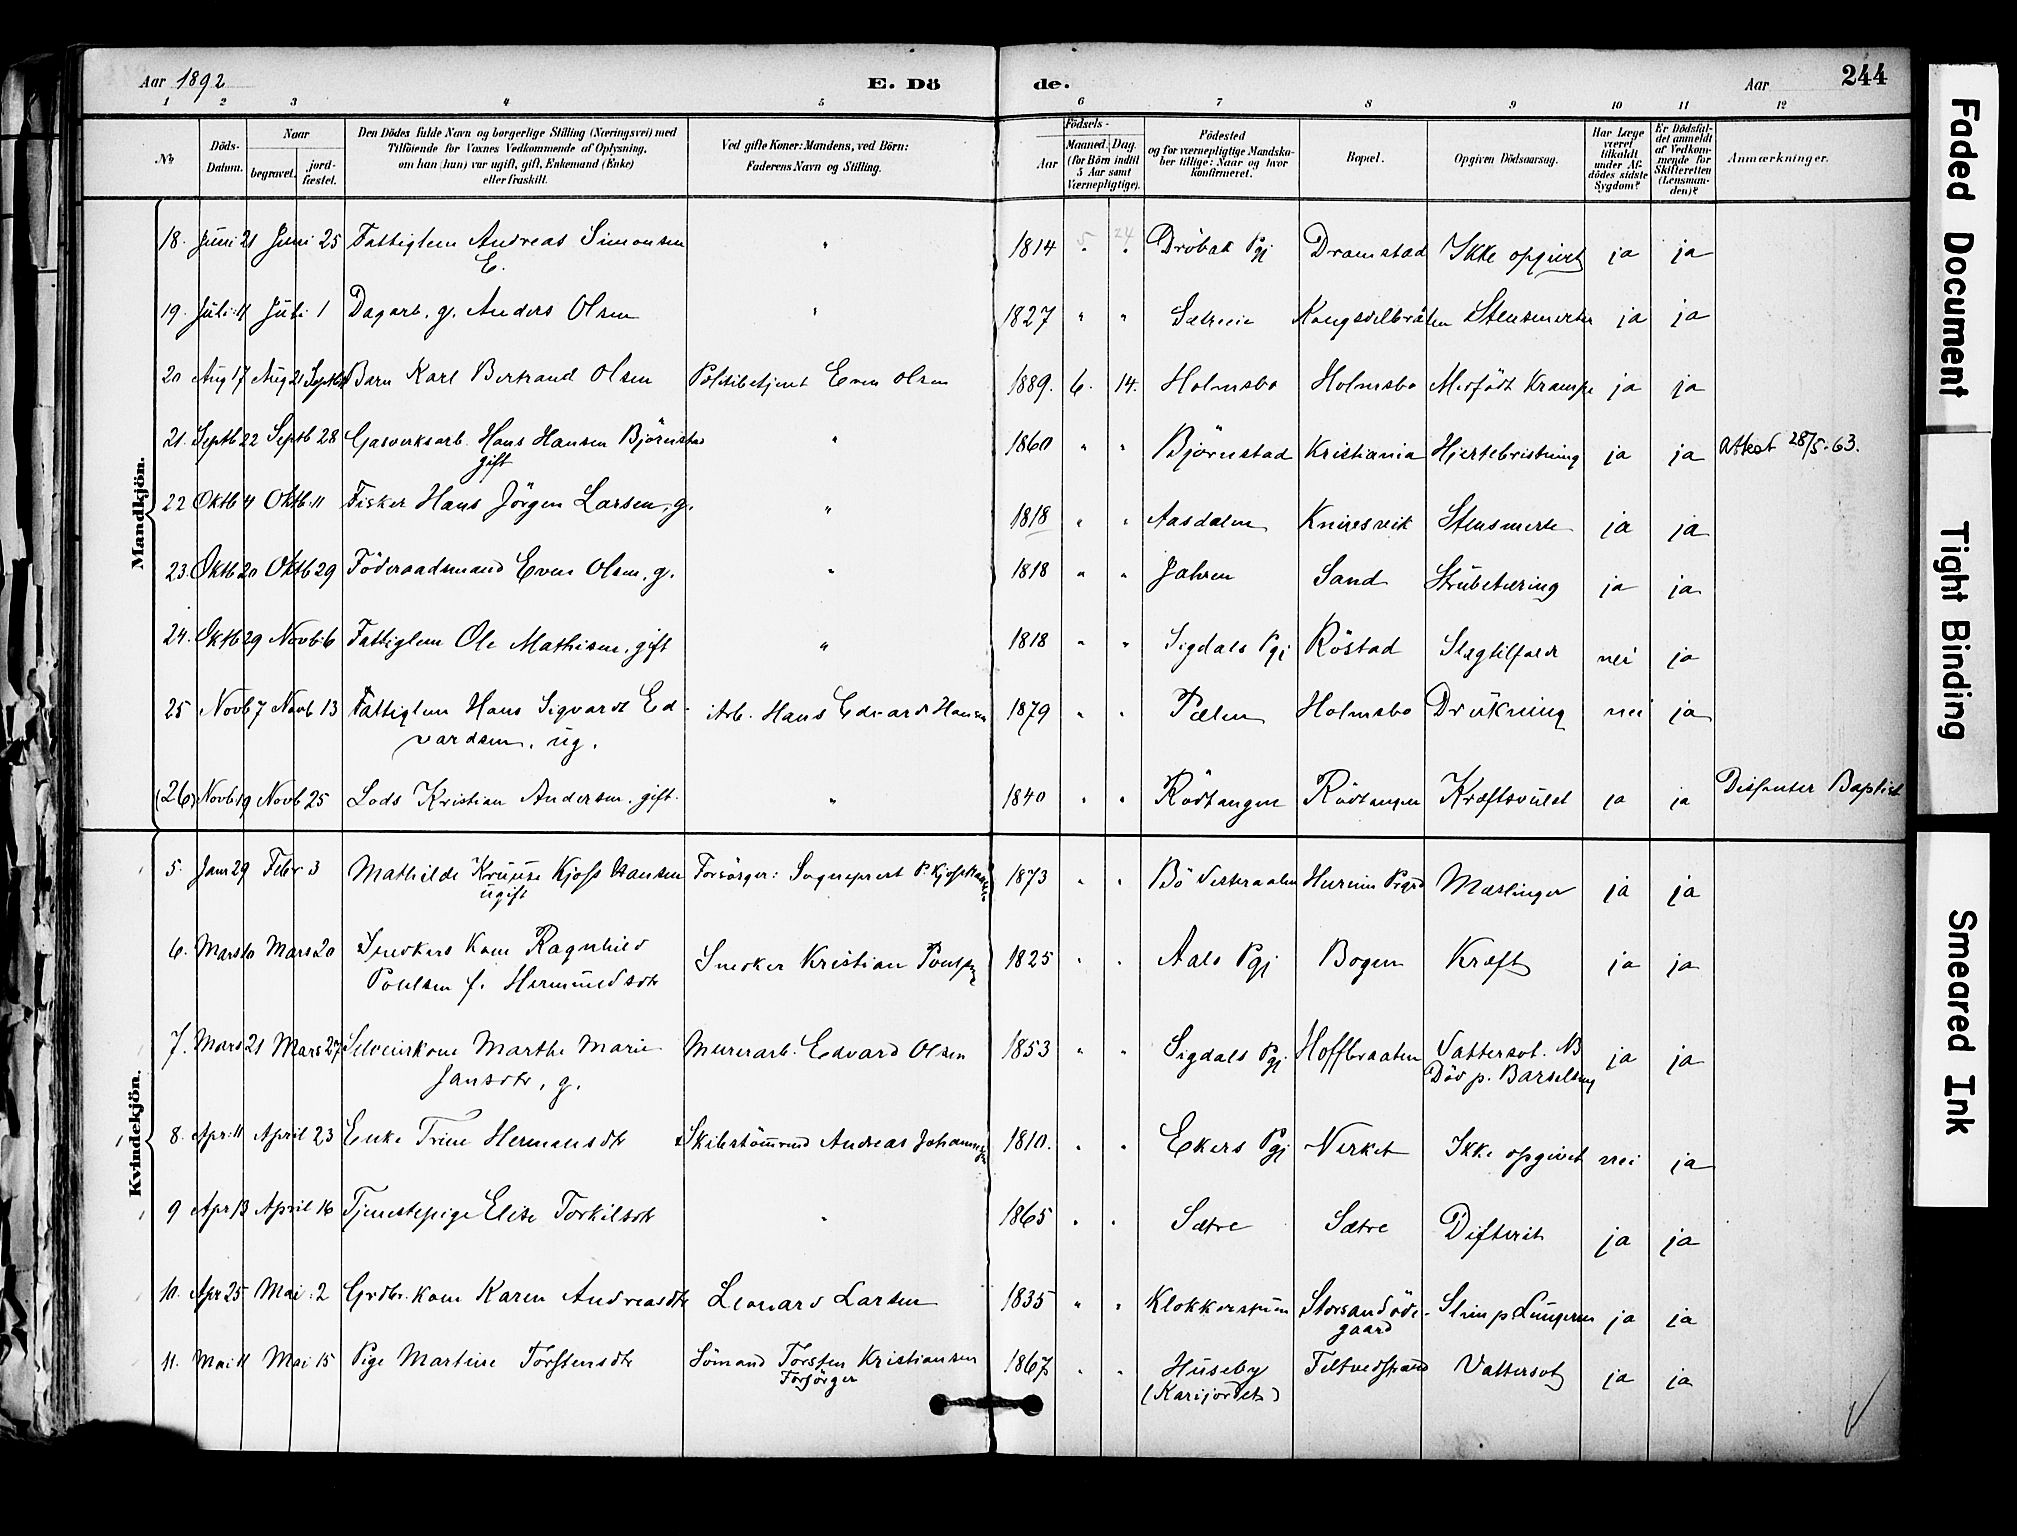 Aar 1892 E. Dö de. Aar 244
1 2 3 4 5 6 7 8 9 10 11 12
No Döds-Datum. Naar begravet. jord-fæstet. Den Dödes fulde Navn og borgerlige Stilling (Næringsvei) med Tilföiende for Voxnes Vedkommende af Oplysning, om han (hun) var ugift, gift, Enkemand (Enke) eller fraskilt. Ved gifte Koner: Mandens, ved Börn: Faderens Navn og Stilling. Födsels- Aar Maaned. Dag. (for Börn indtil 5 Aar samt Værnepligtige). Födested og for værnepligtige Mandskaber tillige: Naar og hvor konfirmeret. Bopæl. Opgiven Dödsaarsag. Har Læge været tilkaldt under Afdödes sidste Sygdom? Er Dödsfaldet anmeldt af Vedkommende for Skifteretten (Lensmanden)? Anmærkninger.
Mandkjön.
18. Juni 21 Juni 25 Fattiglem Andreas Simonsen " 1814 5 24 Dröbak Pgj Dramstad Ikke opgivet ja ja
E.
19. Juli 11 Juli 1 Dagarb. g. Anders Olsen " 1827 " " Sætreeie Kongsdelbråten Stensmerter ja ja
20 Aug 17 Aug 21 Septb Barn Karl Bertrand Olsen Politibetjent Even Olsen 1889. 6. 14. Holmsbo Holmsbo Medfödt Krampe ja ja
21. Septb 22 Septb 28 Gasverksarb. Hans Hansen Björnstad " 1860 " " Björnstad Kristiania Hjertebristning ja ja Attest 28/5-63.
gift
22 Oktb 4 Oktb 11 Fisker Hans Jörgen Larsen, g. " 1818 " " Aasdalen Knivsvik Stensmerte ja ja
23. Oktb 20 Oktb 29 Föderaadsmand Even Olsen, g. " 1818 " " Jahren Sand Strubetæring ja ja
24. Oktb 29 Novb 6 Fattiglem Ole Mathisen, gift " 1818 " " Sigdals Pgj Röstad Slagtilfæld nei ja
25 Novb 7 Novb 13 Fattiglem Hans Sigvardt Ed- Arb. Hans Edvard Hansen 1879 " " Pælen Holmsbo Drukning nei ja
vardsen, ug.
(26) Novb 19 Novb 25 Lods Kristian Andersen, gift. " 1840 " " Rödtangen Rödtangen Kræftsvulst ja ja Dissenter Baptist
Kvindekjön.
5. Janr 29 Febr 3 Mathilde Kruuse Kjoss Hansen Forsörger: Sogneprest P. Kjoss Hansen 1873 " " Bö Vesteraalen Hurum Prgrd Mæslinger ja ja
ugift
6. Mars 10 Mars 20 Snedkers Kone Ragnhild Snedker Kristian Poulsen 1825 " " Aals Pgj Bogen Kræft ja ja
Poulsen f. Hermundsdtr
7. Mars 21 Mars 27 Selveierkone Marthe Marie Murerarb. Edvard Olsen 1853 " " Sigdals Pgj Hoffbraaten Vattersot. NB ja ja
Jansdtr, g. Död p. Barselseng
8. Apr. 11 April 23 Enke Trine Hermansdtr Skibstömmmd Andreas Johannessen 1810. " " Ekers Pgj Verket Ikke opgivet nei ja
9 Apr 13 April 16 Tjenestepige Elise Torkilsdtr " 1865 " " Sætre Sætre Difterit ja ja
10. Apr 25 Mai 2 Grdbr. kone Karen Andreasdtr Leonard Larsen 1835 " " Klokkerstuen Storsandöde- Slim p Lungerne ja ja
gaard
11. Mai 11 Mai 15 Pige Martine Torstensdtr Sömand Torsten Kristiansen 1867 " " Huseby Filtvedstrand Vattersot ja ja
Forsörger (Karijordet)
Faded Document
Tight Binding
Smeared Ink